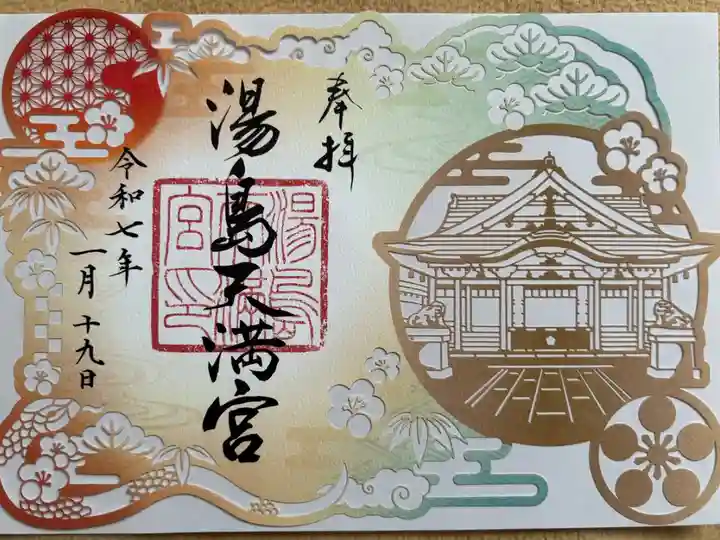 奉拝
湯島天満宮
令和七年
一月十九日